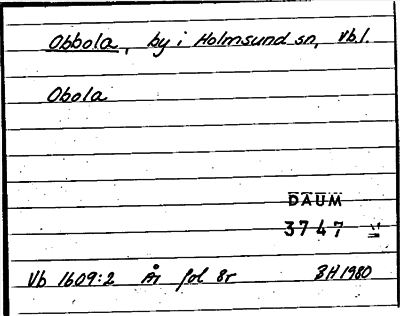 Obbola, by i Holmsund sn, Vb.l.
Obola
DAUM
3747
Vb 1609:2 År fol 8r BH 1980